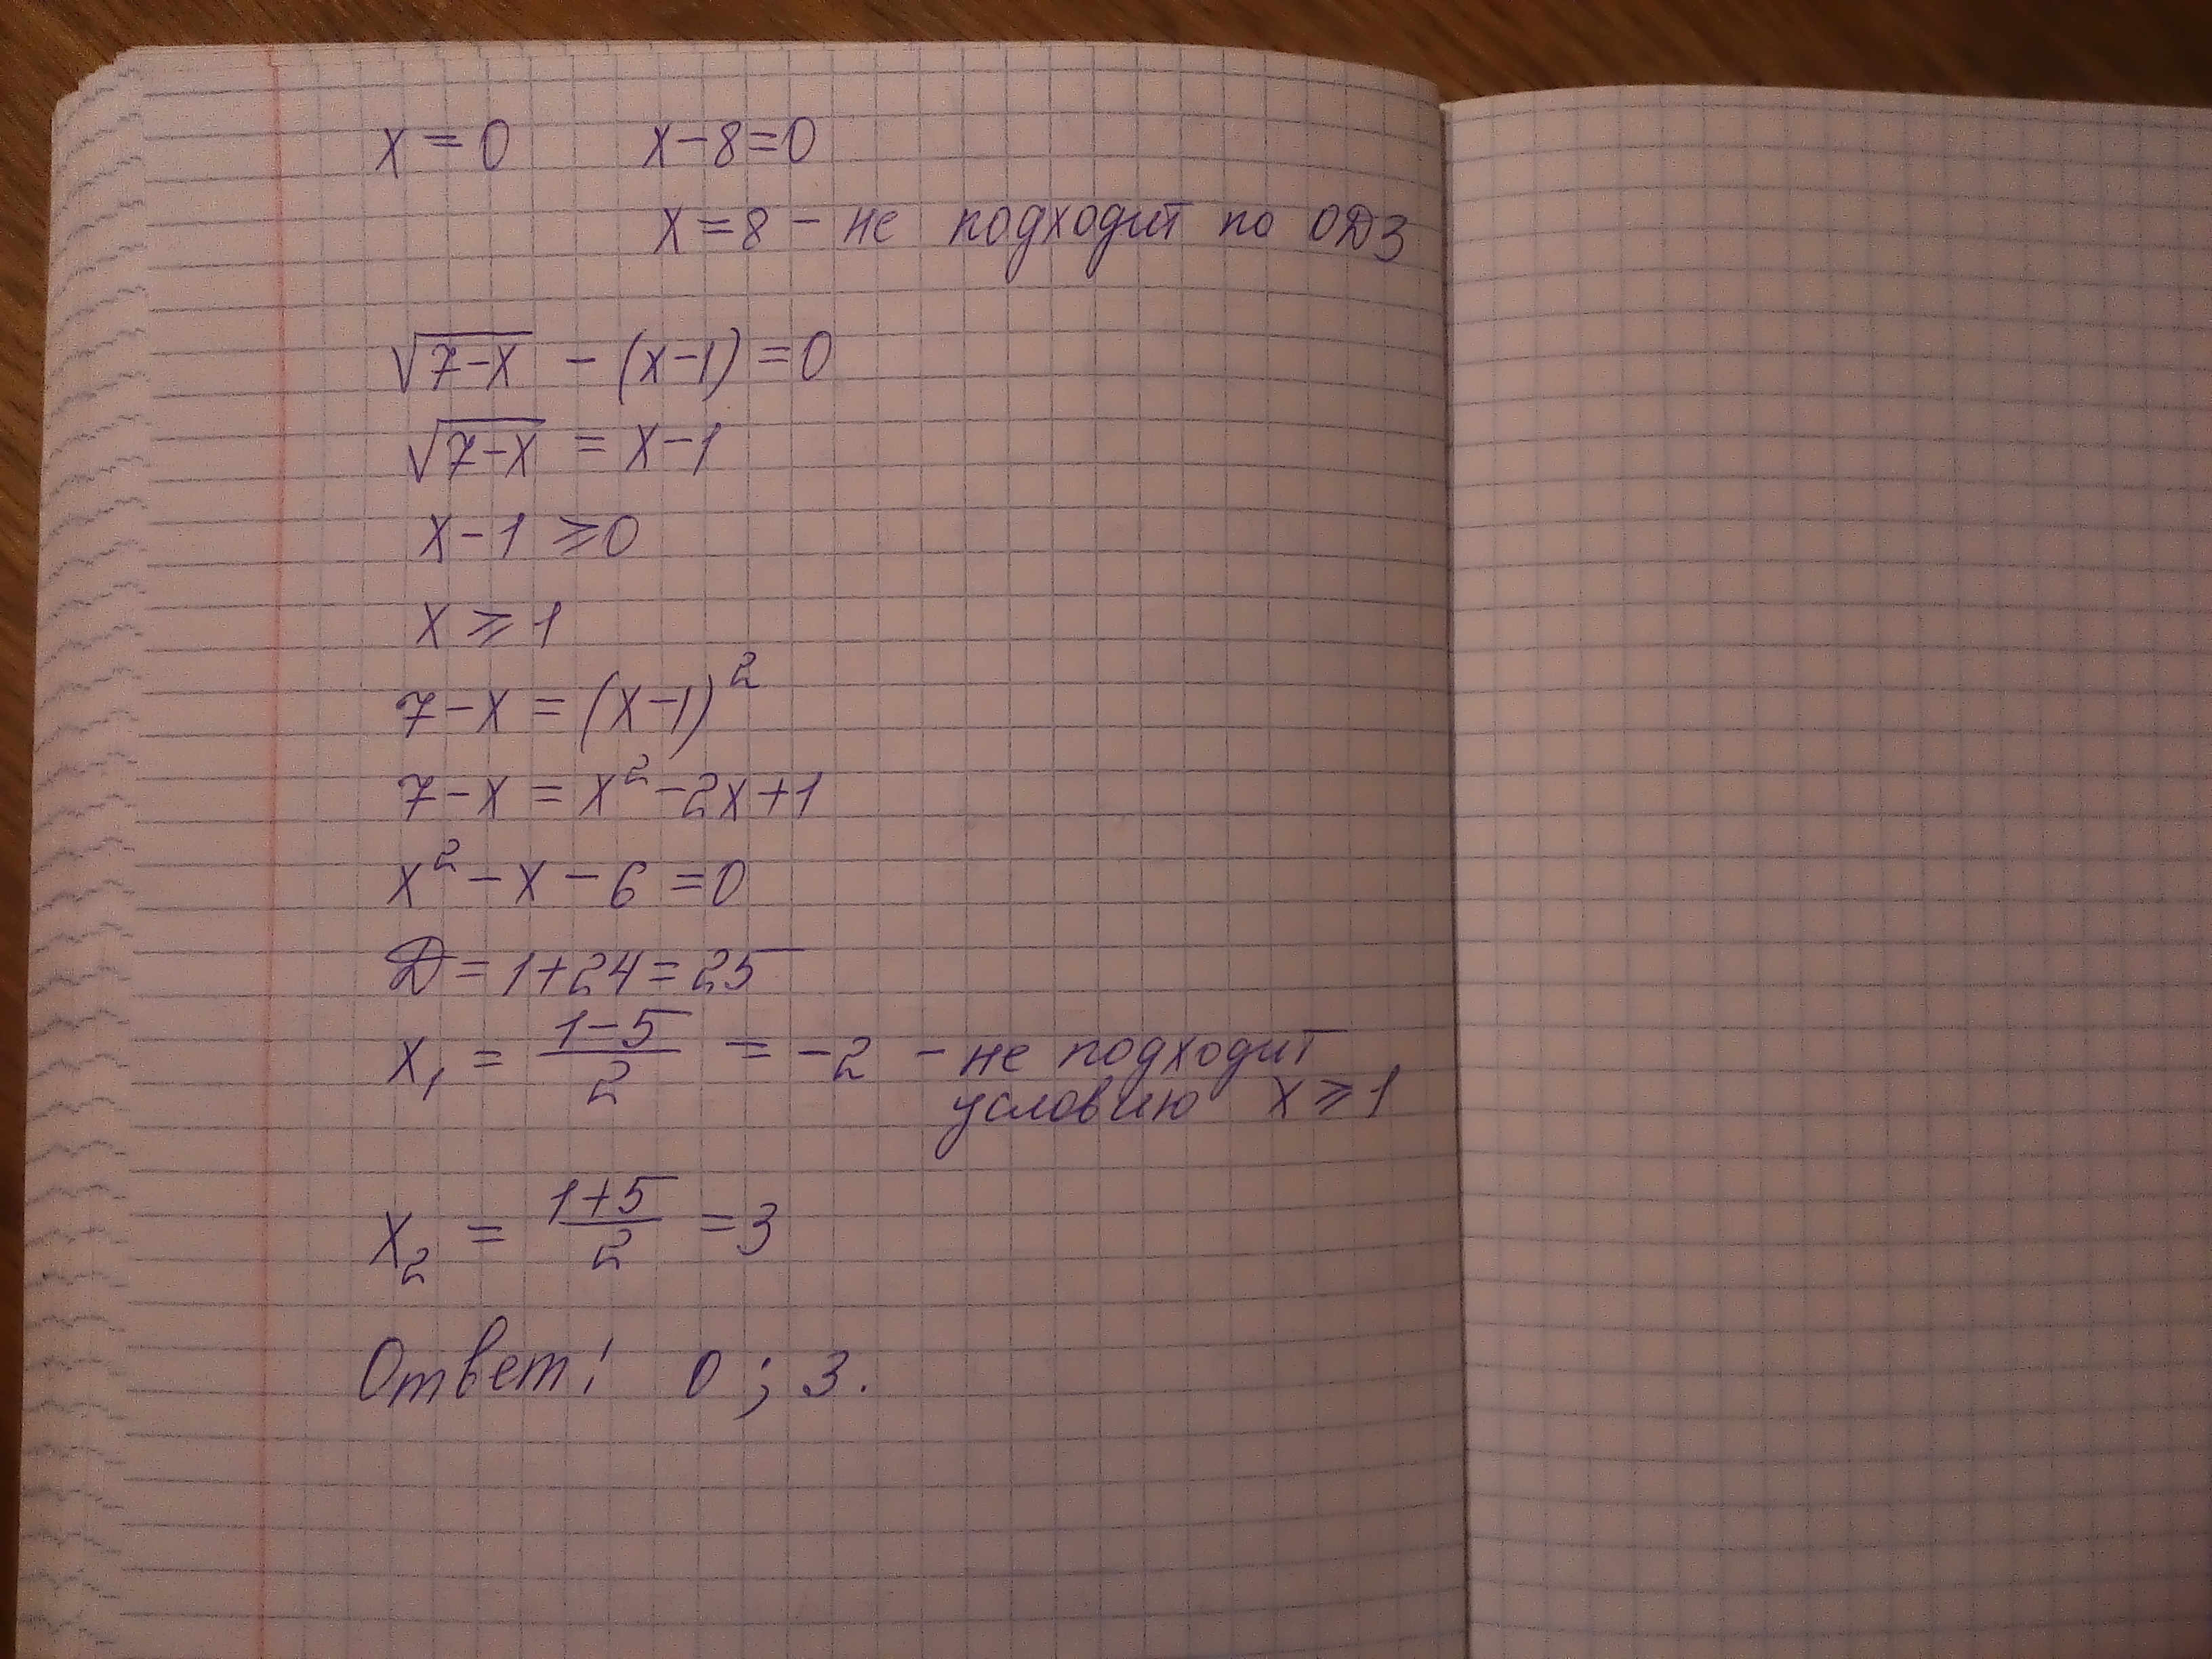 x = 0 x-8=0
x = 8 - не подходит по ОДЗ
√(7-x) - (x-1) = 0
√(7-x) = x-1
x-1 ⩾ 0
x ⩾ 1
7-x = (x-1)²
7-x = x²-2x+1
x²-x-6 = 0
Д = 1+24 = 25
x₁ = (1-5)/2 = -2 - не подходит
условию x ⩾ 1
x₂ = (1+5)/2 = 3
Ответ: 0 ; 3.